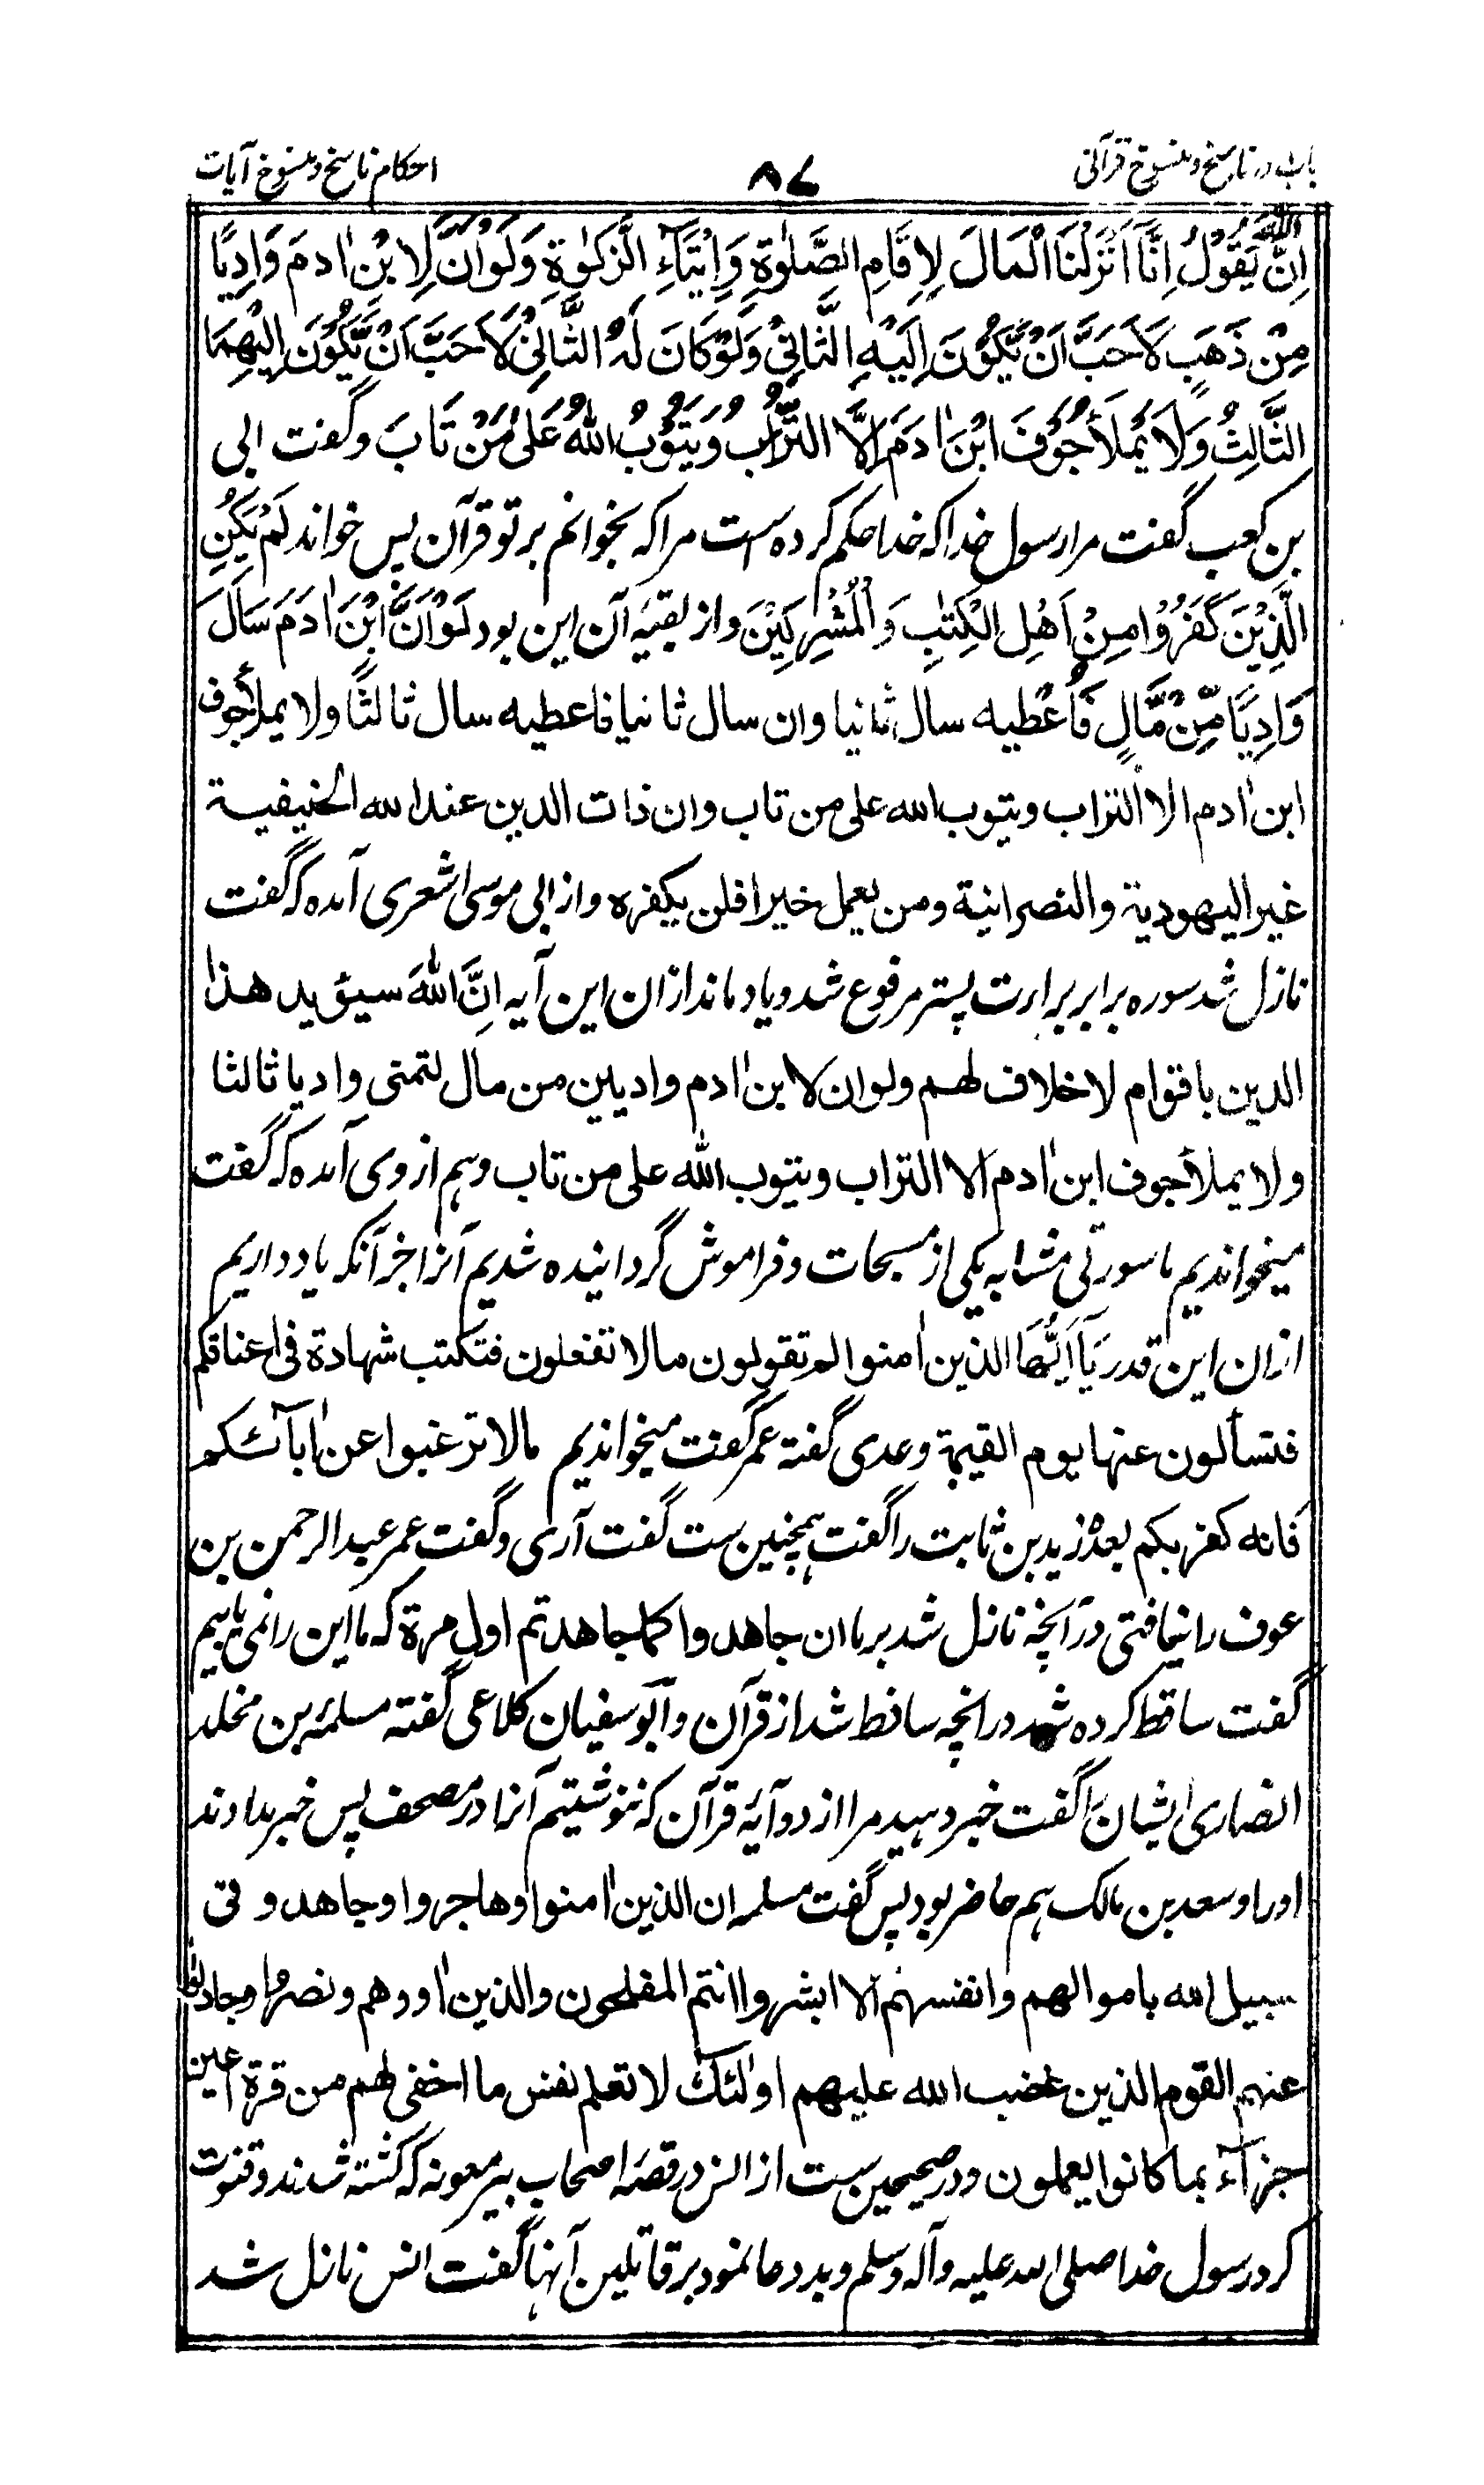 باب در ناسخ و منسوخ قرآنی
۸۷
احکام ناسخ و منسوخ آیات
اِنَّ اللّٰهَ یَقُوْلُ اِنَّا اَنْزَلْنَا الْمَالَ لِاِقَامِ الصَّلٰوةِ وَاِیْتَآءِ الزَّکٰوةِ وَلَوْ اَنَّ لِابْنِ اٰدَمَ وَادِیًا
مِنْ ذَهَبٍ لَاَحَبَّ اَنْ یَّکُوْنَ اِلَیْهِ الثَّانِیْ وَلَوْ کَانَ لَهُ الثَّانِیْ لَاَحَبَّ اَنْ یَّکُوْنَ اِلَیْهِمَا
الثَّالِثُ وَلَا یَمْلَأُ جَوْفَ ابْنِ اٰدَمَ اِلَّا التُّرَابُ وَیَتُوْبُ اللّٰهُ عَلٰی مَنْ تَابَ وگفت ابی
بن کعب گفت مرا رسول خدا که خدا حکم کرده ست مرا که بخوانم بر تو قرآن پس خواند لَمْ یَکُنِ
الَّذِیْنَ کَفَرُوْا مِنْ اَهْلِ الْکِتٰبِ وَالْمُشْرِکِیْنَ واز بقیه آن این بود لَوْ اَنَّ ابْنَ اٰدَمَ سَاَلَ
وَادِیًا مِّنْ مَّالٍ فَاُعْطِیه سال ثانیا وان سال ثانیا فاعطیه سال ثالثًا ولا یملأ جوف
ابن اٰدم الا التراب ویتوب الله علی من تاب وان ذات الدین عند الله الحنیفیة
غیر الیهودیة والنصرانیة ومن یعمل خیرا فلن یکفره واز ابی موسی اشعری آمده که گفت
نازل شد سوره برابر براءت پستر مرفوع شد و یاد ماند ازان این آیه اِنَّ اللّٰهَ سیؤید هذا
الدین باقوام لا خلاق لهم ولو ان لابن اٰدم وادیین من مال لتمنی وادیا ثالثا
ولا یملأ جوف ابن اٰدم الا التراب ویتوب اللّٰه علی من تاب وہم از وی آمده که گفت
میخواندیم ما سورتی مشابه یکی از مسبحات و فراموش گردانیده شدیم آنرا جز آنکه یاد داریم
ازان این قدر یَآ اَیُّهَا الذین اٰمنوا لم تقولون ما لا تفعلون فتکتب شهادة فی اعناقکم
فتسألون عنها یوم القیمة وعدی گفته عمر گفت میخواندیم مالا ترغبوا عن اٰبآئکم
فانه کفر بکم بعده زید بن ثابت را گفت ہمچنین ست گفت آری وگفت عمر عبد الرحمن بن
عوف را نیافتی در آنچه نازل شد بر ما ان جاهدوا کما جاهدتم اول مرة که ما این را نمی یابیم
گفت ساقط کرده شد در انچه ساقط شد از قرآن وآبو سفیان کلاعی گفته مسلمه بن مخلد
انصاری ایشان را گفت خبر دہید مرا از دو آیۀ قرآن که ننوشتیم آنرا در مصحف پس خبر ندادند
اورا و سعد بن مالک ہم حاضر بود پس گفت مسلمه ان الذین اٰمنوا وهاجروا وجاهدو فی
سبیل الله باموالهم وانفسهم الا ابشروا انتم المفلحون والذین اٰووهم ونصروهم وجادلوا
عنهم القوم الذین غضب الله علیهم اولٰئک لا تعلم نفس ما اخفی لهم من قرة اعین
جزآء بما کانوا یعملون ودر صحیحین ست از انس در قصۀ اصحاب بیر معونه که کشته شدند و قنوت
کرد رسول خدا صلی الله علیه وآله وسلم و بددعا نمود بر قاتلین آنہا گفت انس نازل شد